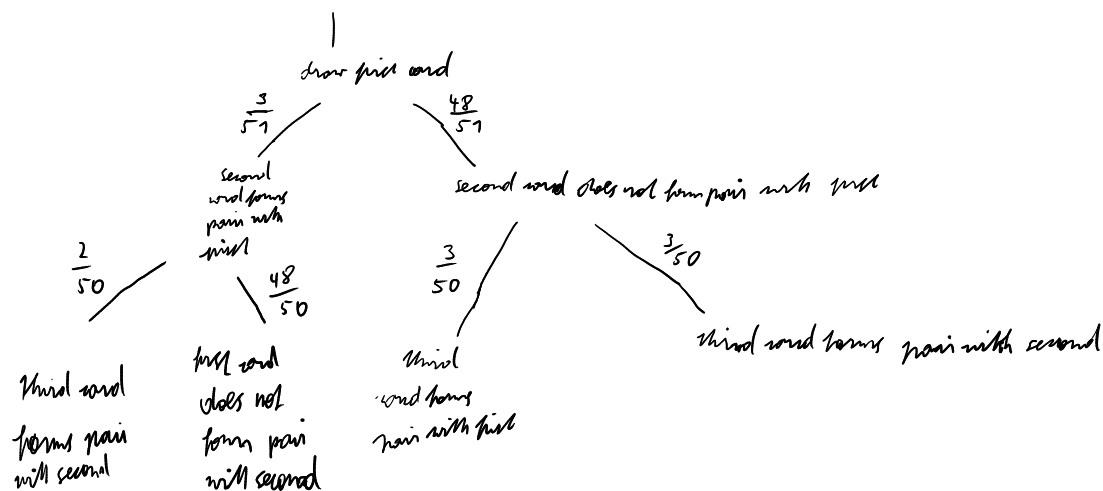 1
draw first card
3/51
48/51
second
card forms
pair with
first
second card does not form pair with first
2/50
48/50
3/50
3/50
third card
forms pair
with second
first card
does not
form pair
will second
third
card forms
pair with first
third card forms pair with second